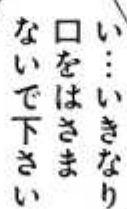 い…いきなり
口をはさま
ないで下さい